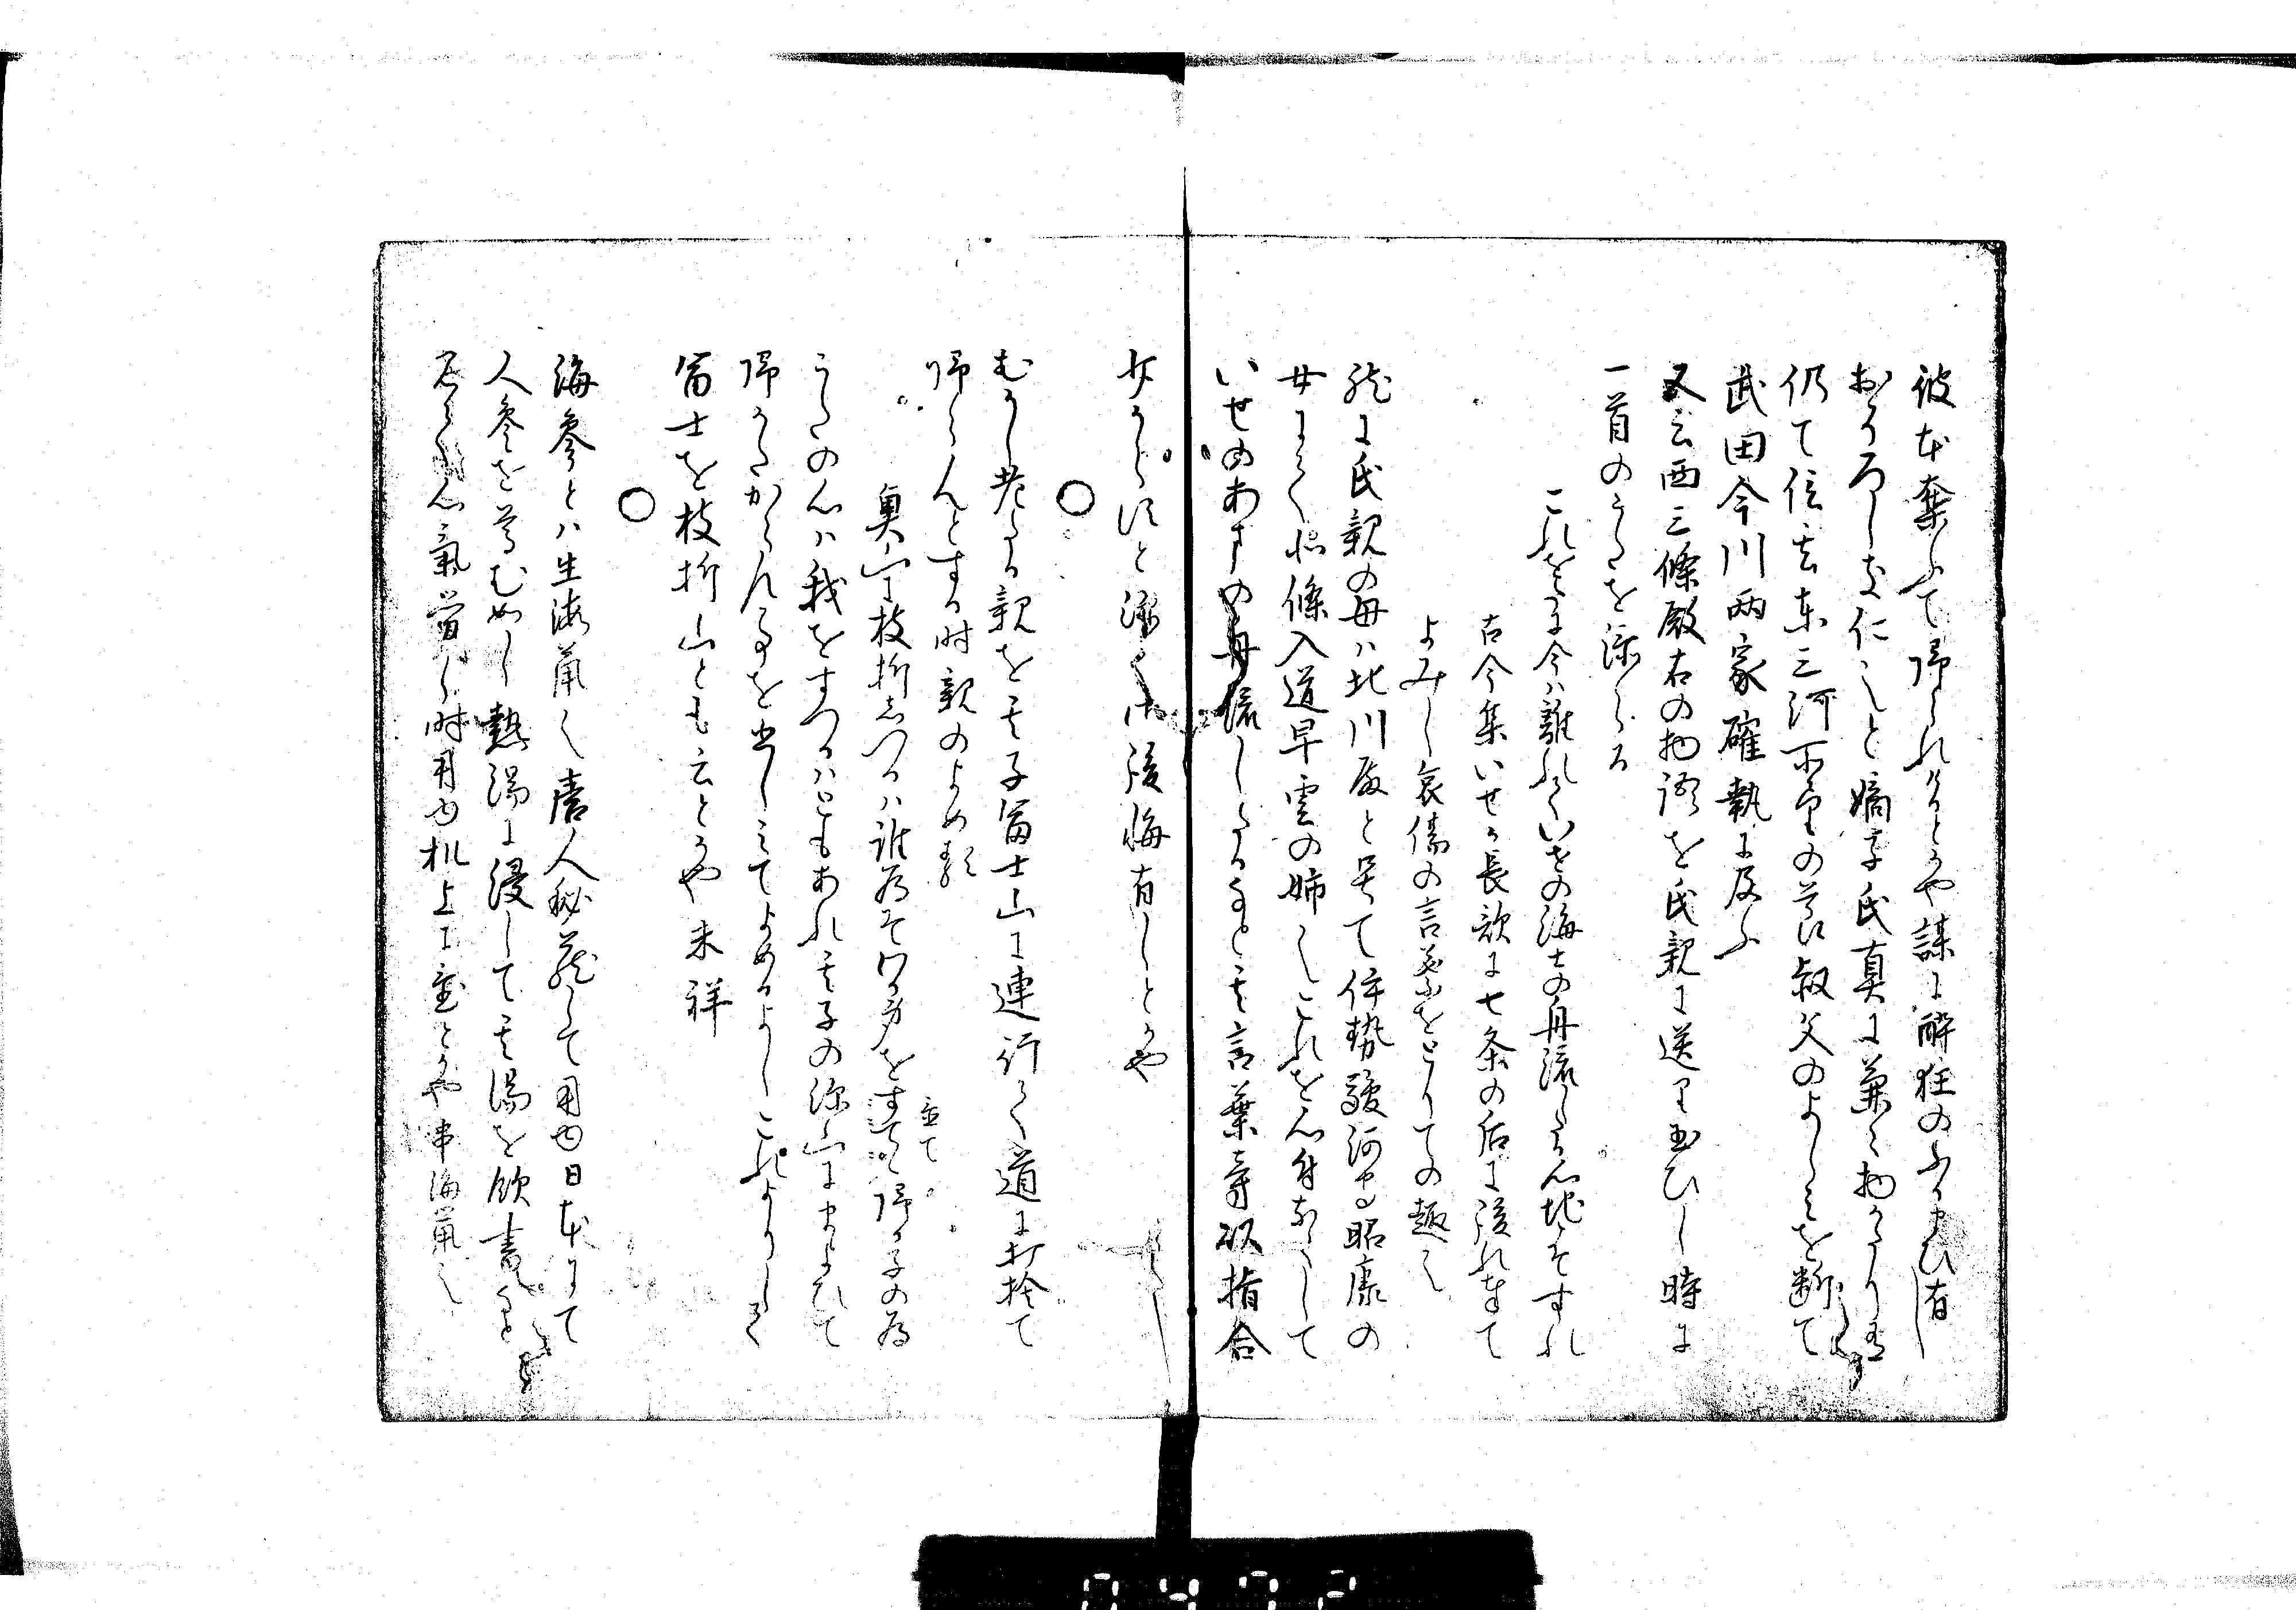 彼本奪ふて帰られけるとかや謀に酔狂のふるまひ有し
おそろしき仁也と嫡子氏真に兼々物かたり有
仍て信玄東三河不望の義は叔父のよしみを断て
武田今川両家確執に及ふ
又云西三條殿右の物語を氏親に送り玉ひし時に
一首のうたを添らる
これをみよ今は離れていせの海士の舟流したる心地こそすれ
古今集いせか長歌に七条の后に後れ奉て
よみし哀傷の言葉をとりての趣也
然に氏親の母は北川殿と号て伊勢駿河守昭康の
女にして北條入道早雲の姉也これを心付なくして
いせのあまの舟流したるなと其言葉寄以指合
ならすと深く御後悔有しとかや
○
むかし老たる親を其子富士山に連行て道に打捨て
帰らんとする時親のよめる歌
奥山に枝折しつるは誰為そ我身をすてて帰る子の為
置て
うたの心は我をすつるはともあれ其子の深山にまよひて
帰りかたからん事を悲しみてよめるよしこれよりして
富士を枝折山とも云とかや未祥
○
海参とは生海鼠也唐人秘蔵して用ゆ日本にて
人参を尊むめり熱湯に浸して其湯を飲書なと
見て心氣労るゝ時用ゆ机上に置とかや串海鼠也
0472